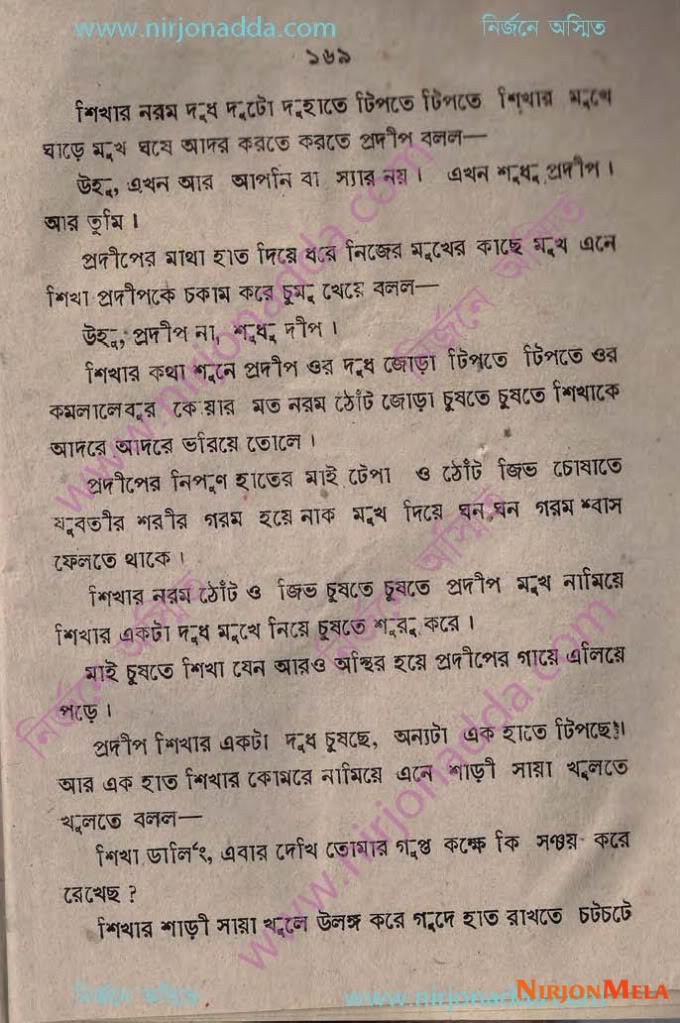 www.nirjonadda.com নির্জনে অস্মিত
১৬৯
শিখার নরম দুধ দুটো দুহাতে টিপতে টিপতে শিখার মুখে
ঘাড়ে মুখ ঘষে আদর করতে করতে প্রদীপ বলল—
উহু, এখন আর আপনি বা স্যার নয়। এখন শুধু প্রদীপ।
আর তুমি।
প্রদীপের মাথা হাত দিয়ে ধরে নিজের মুখের কাছে মুখ এনে
শিখা প্রদীপকে চকাম করে চুমু খেয়ে বলল—
উহু, প্রদীপ না, শুধু দীপ।
শিখার কথা শুনে প্রদীপ ওর দুধ জোড়া টিপতে টিপতে ওর
কমলালেবুর কোয়ার মত নরম ঠোঁট জোড়া চুষতে চুষতে শিখাকে
আদরে আদরে ভরিয়ে তোলে।
প্রদীপের নিপুণ হাতের মাই টেপা ও ঠোঁট জিভ চোষাতে
যুবতীর শরীর গরম হয়ে নাক মুখ দিয়ে ঘন ঘন গরম শ্বাস
ফেলতে থাকে।
শিখার নরম ঠোঁট ও জিভ চুষতে চুষতে প্রদীপ মুখ নামিয়ে
শিখার একটা দুধ মুখে নিয়ে চুষতে শুরু করে।
মাই চুষতে শিখা যেন আরও অস্থির হয়ে প্রদীপের গায়ে এলিয়ে
পড়ে।
প্রদীপ শিখার একটা দুধ চুষছে, অন্যটা এক হাতে টিপছে।
আর এক হাত শিখার কোমরে নামিয়ে এনে শাড়ী সায়া খুলতে
খুলতে বলল—
শিখা ডার্লিং, এবার দেখি তোমার গুপ্ত কক্ষে কি সঞ্চয় করে
রেখেছ ?
শিখার শাড়ী সায়া খুলে উলঙ্গ করে গুদে হাত রাখতে চটচটে
নির্জনে অস্মিত www.nirjonadda.com
NIRJONMELA